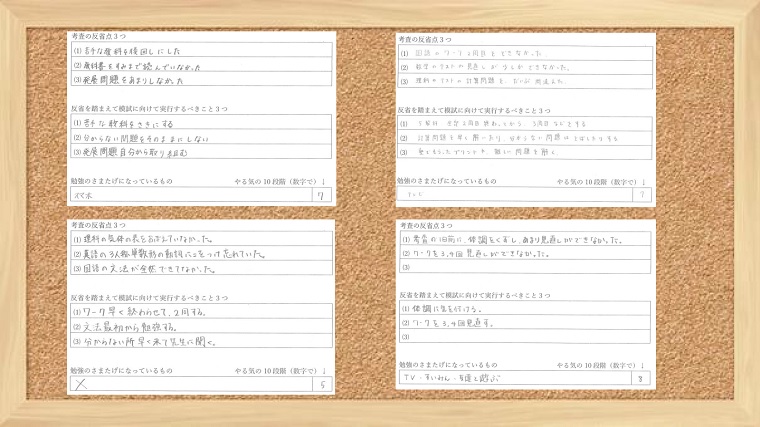 考査の反省点３つ
(1) 苦手な教科を後回しにした
(2) 教科書をすみまで読んでいなかった
(3) 発展問題をあまりしなかった
反省を踏まえて模試に向けて実行するべきこと３つ
(1) 苦手な教科をさきにする
(2) 分からない問題をそのままにしない
(3) 発展問題自分から取り組む
勉強のさまたげになっているもの やる気の 10 段階（数字で）↓
スマホ 7
考査の反省点３つ
(1) 国語のワーク2周目をできなかった
(2) 数学のテストの見直しが できなかった。
(3) 理科のテストの計算問題を
反省を踏まえて模試に向けて実行するべきこと３つ
(1)
(2) 計算問題を
(3) 問題を解く。
勉強のさまたげになっているもの やる気の 10 段階（数字で）↓
TVとか 7
考査の反省点３つ
(1) 理科の気体の表をおぼえていなかった。
(2) 英語の3人称単数形の動詞にsをつけ忘れていた。
(3) 国語の文法が全然できてなかった。
反省を踏まえて模試に向けて実行するべきこと３つ
(1) ワーク早く終わらせて、2周する。
(2) 文法最初から勉強する。
(3) 分からない所早く来て先生に聞く。
勉強のさまたげになっているもの やる気の 10 段階（数字で）↓
× 5
考査の反省点３つ
(1) 考査の1日前に、体調をくずし、あまり見直しができなかった。
(2) ワークを3,4回見直しができなかった。
(3)
反省を踏まえて模試に向けて実行するべきこと３つ
(1) 体調に気を付ける。
(2) ワークを3,4回見直す。
(3)
勉強のさまたげになっているもの やる気の 10 段階（数字で）↓
TV・すいみん・友達と遊ぶ 8